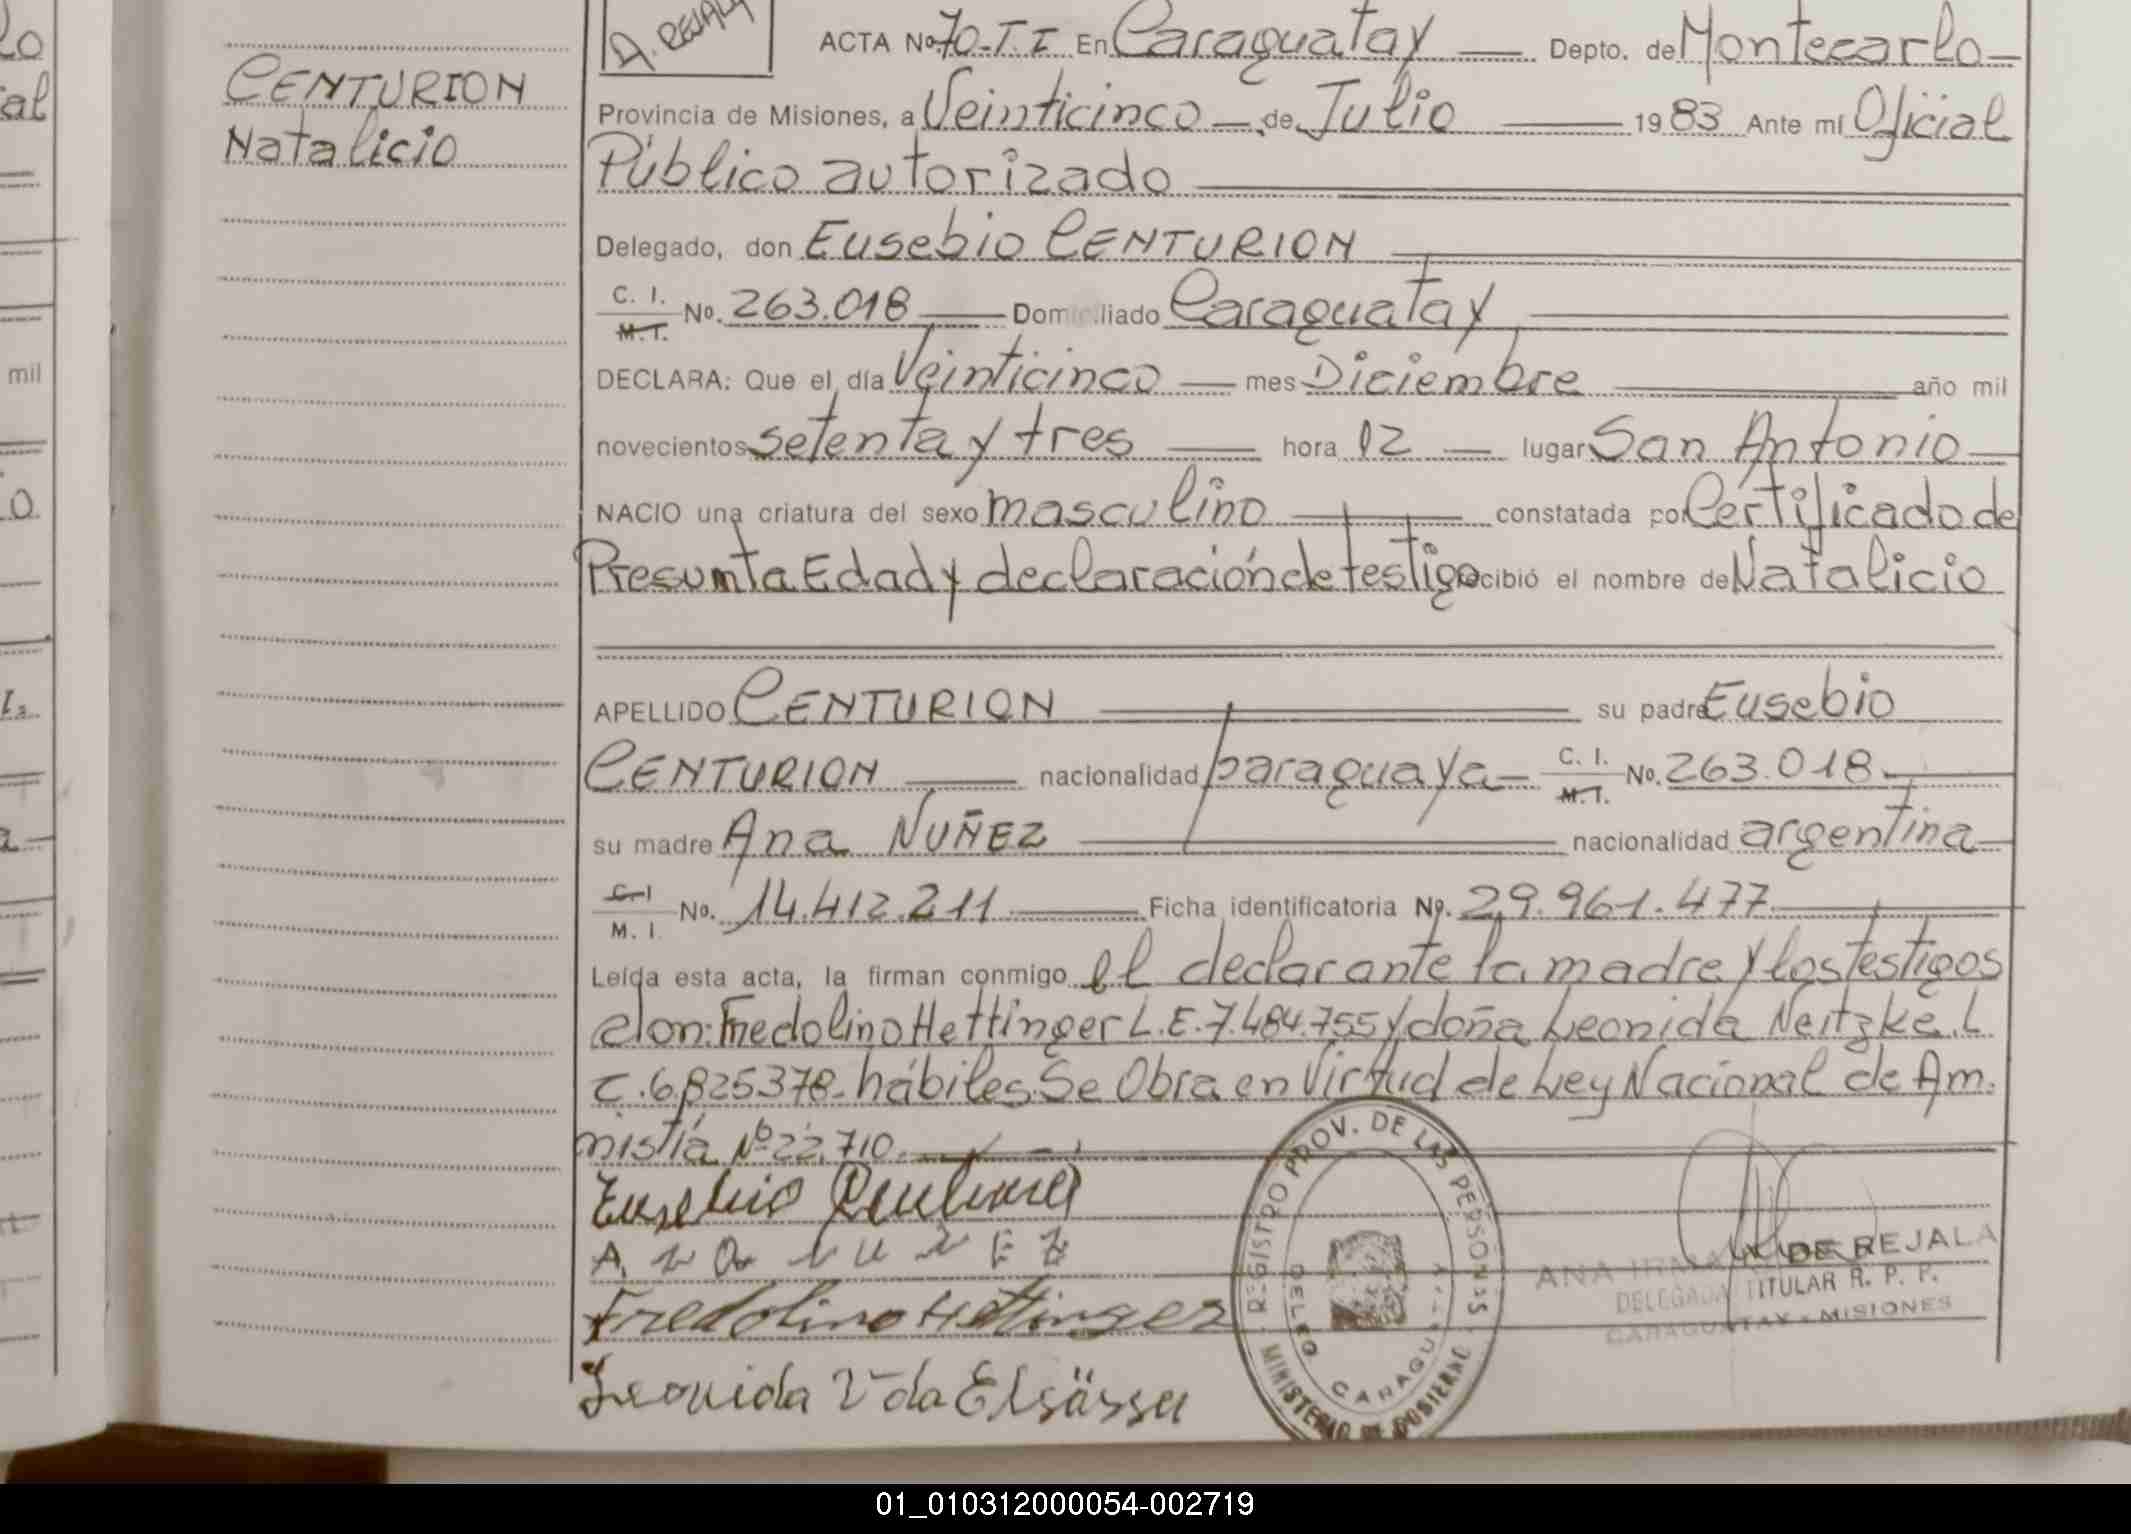 A. REJALA
ACTA No. 70-T.I En Caraguatay Depto. de Montecarlo
CENTURION
Natalicio
Provincia de Misiones, a Veinticinco de Julio 1983 Ante mí Oficial
Público autorizado
Delegado, don Eusebio CENTURION
C. I.
M. I. No. 263.018 Domiciliado Caraguatay
DECLARA: Que el día Veinticinco mes Diciembre año mil
novecientos setenta y tres hora 12 lugar San Antonio
NACIO una criatura del sexo masculino constatada por Certificado de
Presunta Edad y declaración de testigo recibió el nombre de Natalicio
APELLIDO CENTURION su padre Eusebio
CENTURION nacionalidad paraguaya C. I. No. 263.018
M. I.
su madre Ana NUÑEZ nacionalidad argentina
C. I
M. I. No. 14.412.211 Ficha identificatoria No. 29.961.477
Leída esta acta, la firman conmigo el declarante la madre y los testigos
don: Fredolino Hettinger L.E. 7.484.755 y doña Leonida Neitzke. L.
C. 6825378. hábiles. Se Obra en Virtud de Ley Nacional de Am.
nistía Nº 22.710.
Eusebio Centurion
Ana NUÑEZ
Fredolino Hettinger
Leonida Vda Elsässer
REGISTRO PROV. DE LAS PERSONAS
DELEG. CARAGUATAY
MINISTERIO DE GOBIERNO
ANA IRMA DE REJALA
DELEGADA TITULAR R. P. P.
CARAGUATAY - MISIONES
mil
01_010312000054-002719